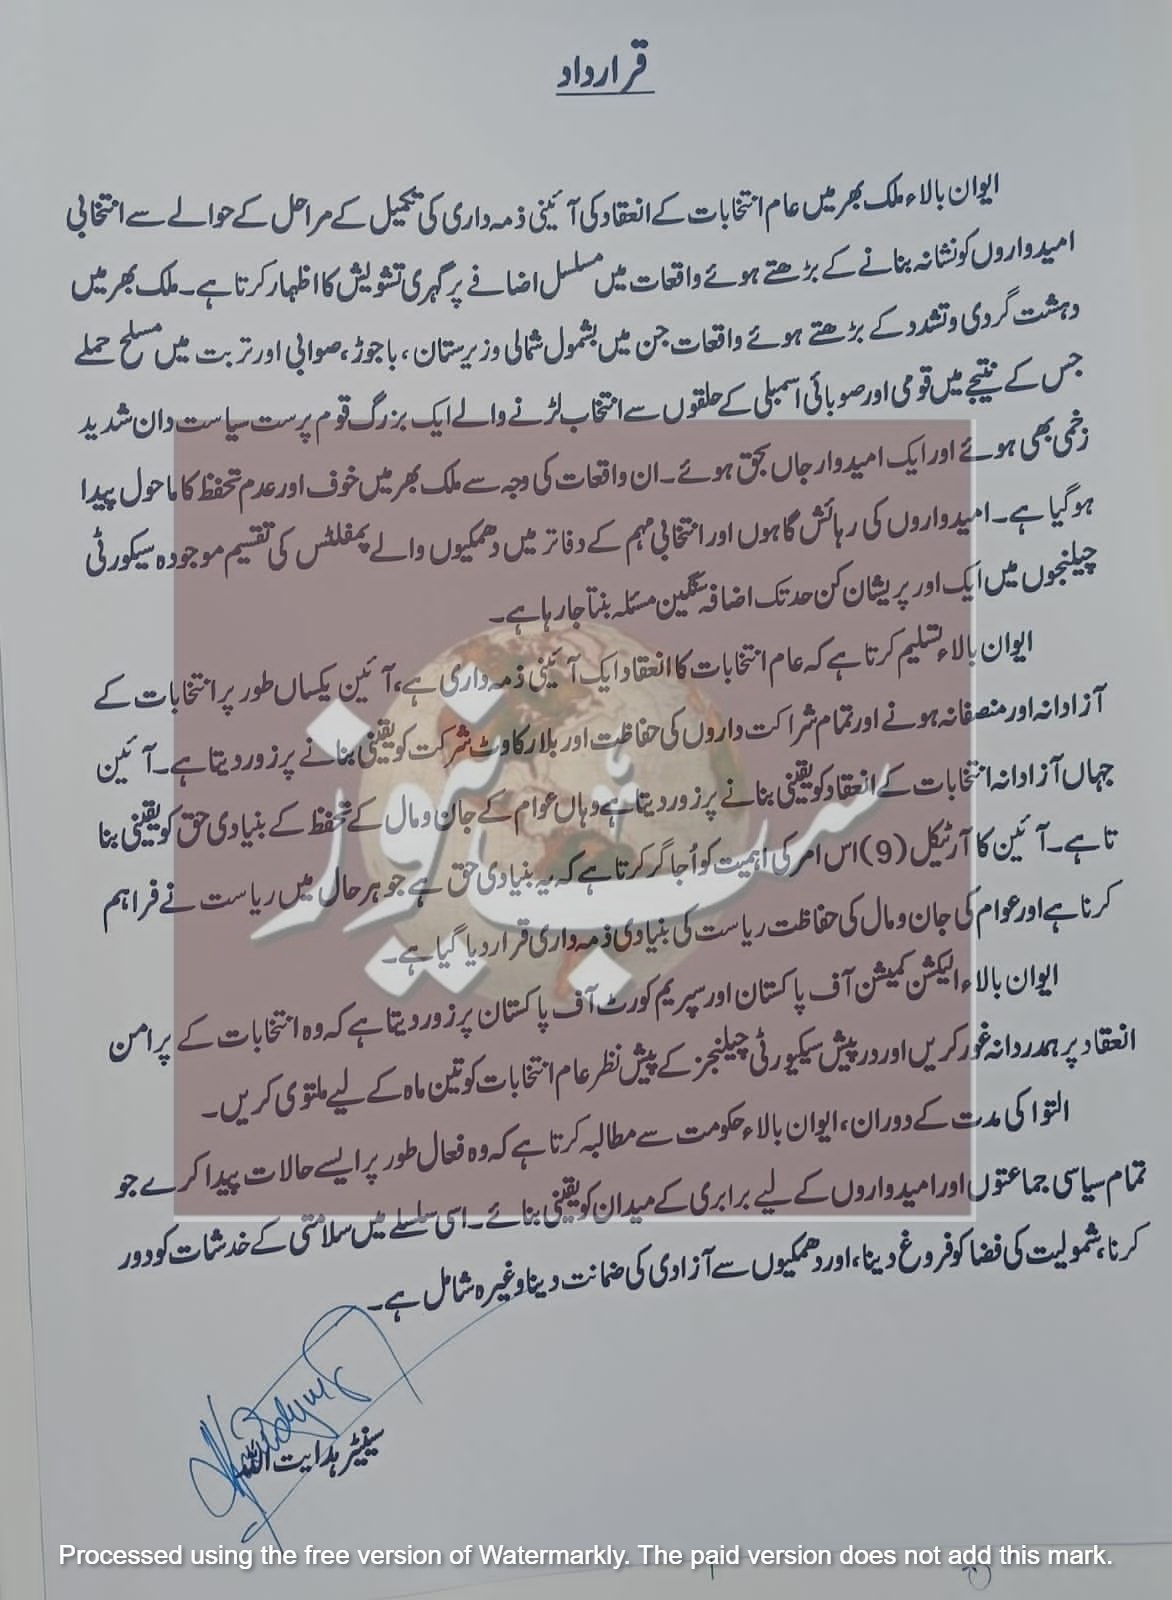 قرارداد
ایوان بالاء ملک بھر میں عام انتخابات کے انعقاد کی آئینی ذمہ داری کی تکمیل کے مراحل کے حوالے سے انتخابی
امیدواروں کو نشانہ بنانے کے بڑھتے ہوئے واقعات میں مسلسل اضافے پر گہری تشویش کا اظہار کرتا ہے۔ ملک بھر میں
دہشت گردی و تشدد کے بڑھتے ہوئے واقعات جن میں بشمول شمالی وزیرستان، باجوڑ، صوابی اور تربت میں مسلح حملے
جس کے نتیجے میں قومی اور صوبائی اسمبلی کے حلقوں سے انتخاب لڑنے والے ایک بزرگ قوم پرست سیاست دان شدید
زخمی بھی ہوئے اور ایک امیدوار جاں بحق ہوئے۔ ان واقعات کی وجہ سے ملک بھر میں خوف اور عدم تحفظ کا ماحول پیدا
ہوگیا ہے۔ امیدواروں کی رہائش گاہوں اور انتخابی مہم کے دفاتر میں دھمکیوں والے پمفلٹس کی تقسیم موجودہ سیکورٹی
چیلنجوں میں ایک اور پریشان کن حد تک اضافہ سنگین مسئلہ بنتا جا رہا ہے۔
ایوان بالاء تسلیم کرتا ہے کہ عام انتخابات کا انعقاد ایک آئینی ذمہ داری ہے، آئین یکساں طور پر انتخابات کے
آزادانہ اور منصفانہ ہونے اور تمام شراکت داروں کی حفاظت اور بلا رکاوٹ شرکت کو یقینی بنانے پر زور دیتا ہے۔ آئین
جہاں آزادانہ انتخابات کے انعقاد کو یقینی بنانے پر زور دیتا ہے وہاں عوام کے جان و مال کے تحفظ کے بنیادی حق کو یقینی بنا
تا ہے۔ آئین کا آرٹیکل (9) اس امر کی اہمیت کو اُجاگر کرتا ہے کہ یہ بنیادی حق ہے جو ہر حال میں ریاست نے فراہم
کرنا ہے اور عوام کی جان و مال کی حفاظت ریاست کی بنیادی ذمہ داری قرار دیا گیا ہے۔
ایوان بالاء الیکشن کمیشن آف پاکستان اور سپریم کورٹ آف پاکستان پر زور دیتا ہے کہ وہ انتخابات کے پر امن
انعقاد پر ہمدردانہ غور کریں اور درپیش سیکیورٹی چیلنجز کے پیش نظر عام انتخابات کو تین ماہ کے لیے ملتوی کریں۔
التوا کی مدت کے دوران، ایوان بالاء حکومت سے مطالبہ کرتا ہے کہ وہ فعال طور پر ایسے حالات پیدا کرے جو
تمام سیاسی جماعتوں اور امیدواروں کے لیے برابری کے میدان کو یقینی بنائے۔ اسی سلسلے میں سلامتی کے خدشات کو دور
کرنا، شمولیت کی فضا کو فروغ دینا، اور دھمکیوں سے آزادی کی ضمانت دینا وغیرہ شامل ہے۔
سینیٹر ہدایت اللہ
سب نیوز
Processed using the free version of Watermarkly. The paid version does not add this mark.